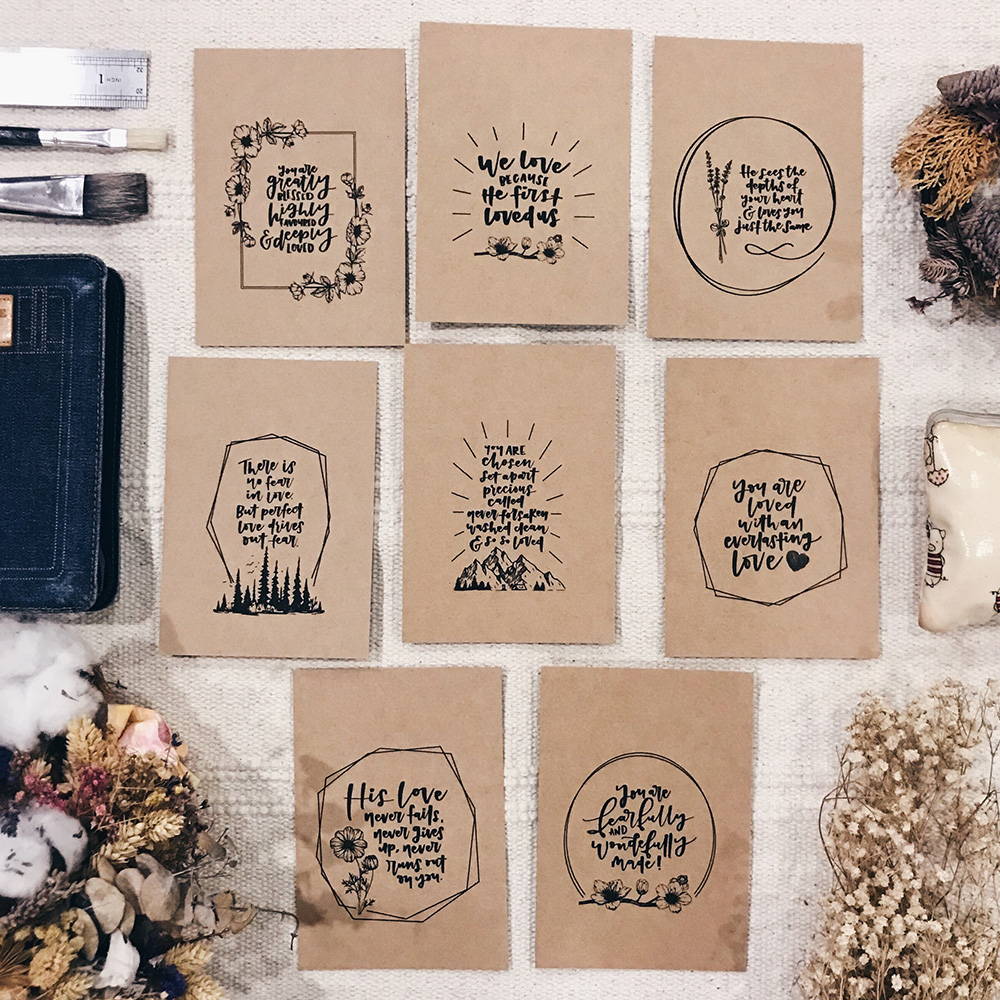 32
1 INCH
20
You are
greatly
BLESSED
highly
FAVOURED
& deeply
LOVED
We love
BECAUSE
He first
loved us
He sees the
depths of
your heart
& loves you
just the same
There is
no fear
in love.
But perfect
love drives
out fear.
YOU ARE
chosen,
set apart
precious
called
never forsaken
washed clean
& so so loved
You are
loved
with an
everlasting
love
His love
never fails,
never gives
up, never
runs out
on you.
You are
fearfully
AND
wonderfully
made!